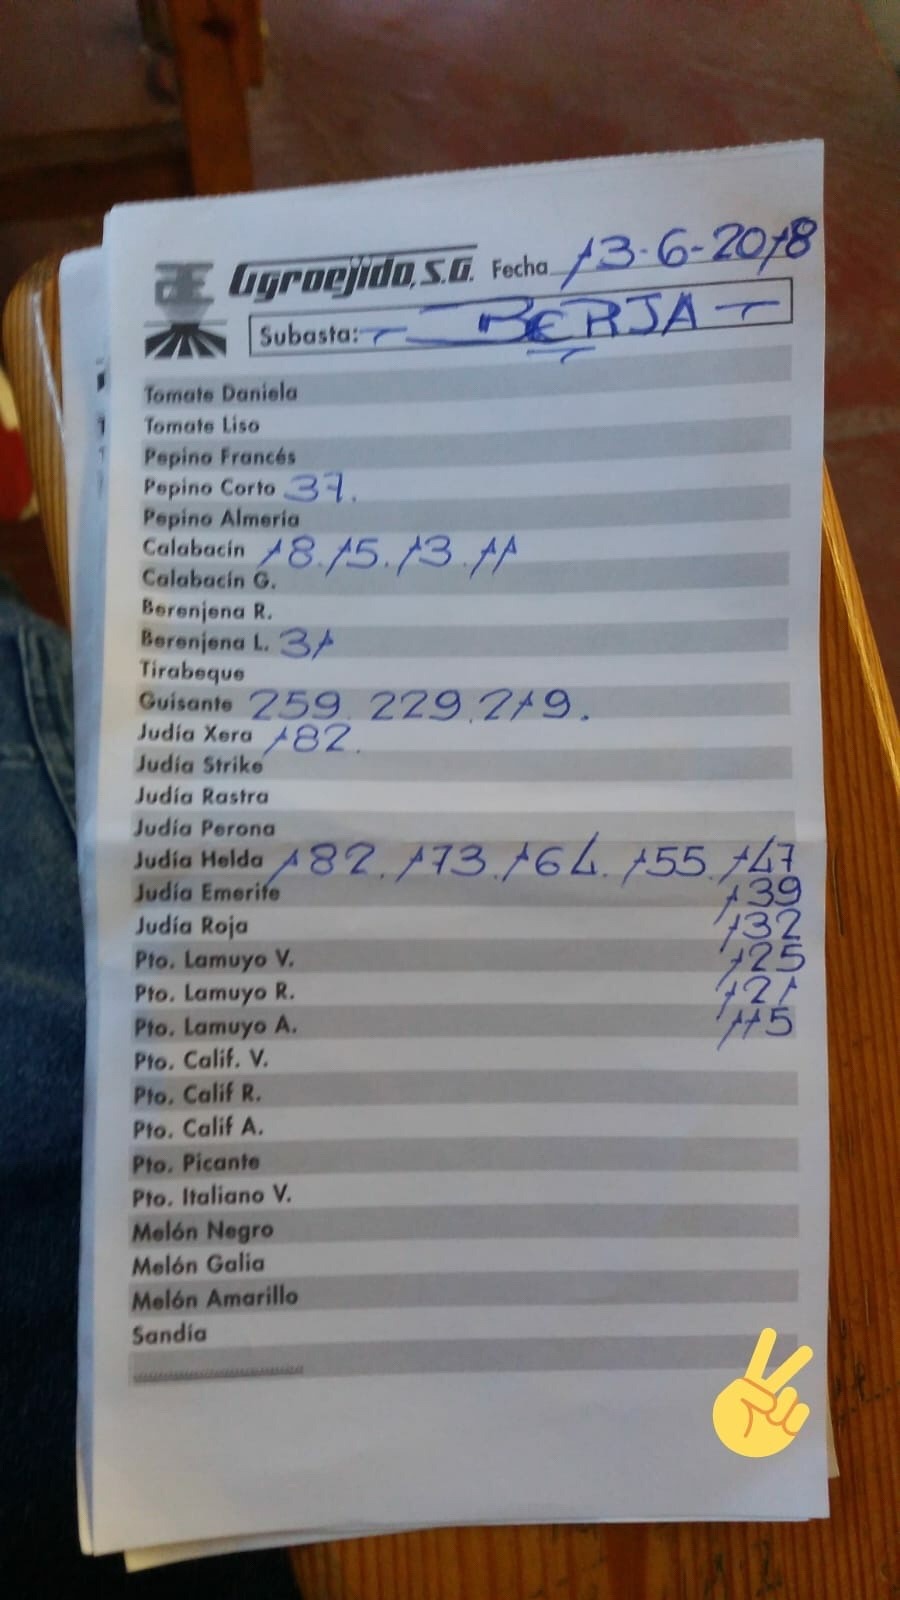 Agroejido, S.A. Fecha 13-6-2018
Subasta: - BERJA -
Tomate Daniela
Tomate Liso
Pepino Francés
Pepino Corto 37.
Pepino Almeria
Calabacín 18. 15. 13. 11
Calabacín G.
Berenjena R.
Berenjena L. 31
Tirabeque
Guisante 259. 229. 219.
Judía Xera 182.
Judía Strike
Judía Rastra
Judía Perona
Judía Helda 182. 173. 164. 155. 147
Judía Emerite 139
Judía Roja 132
Pto. Lamuyo V. 125
Pto. Lamuyo R. 121
Pto. Lamuyo A. 115
Pto. Calif. V.
Pto. Calif R.
Pto. Calif A.
Pto. Picante
Pto. Italiano V.
Melón Negro
Melón Galia
Melón Amarillo
Sandía